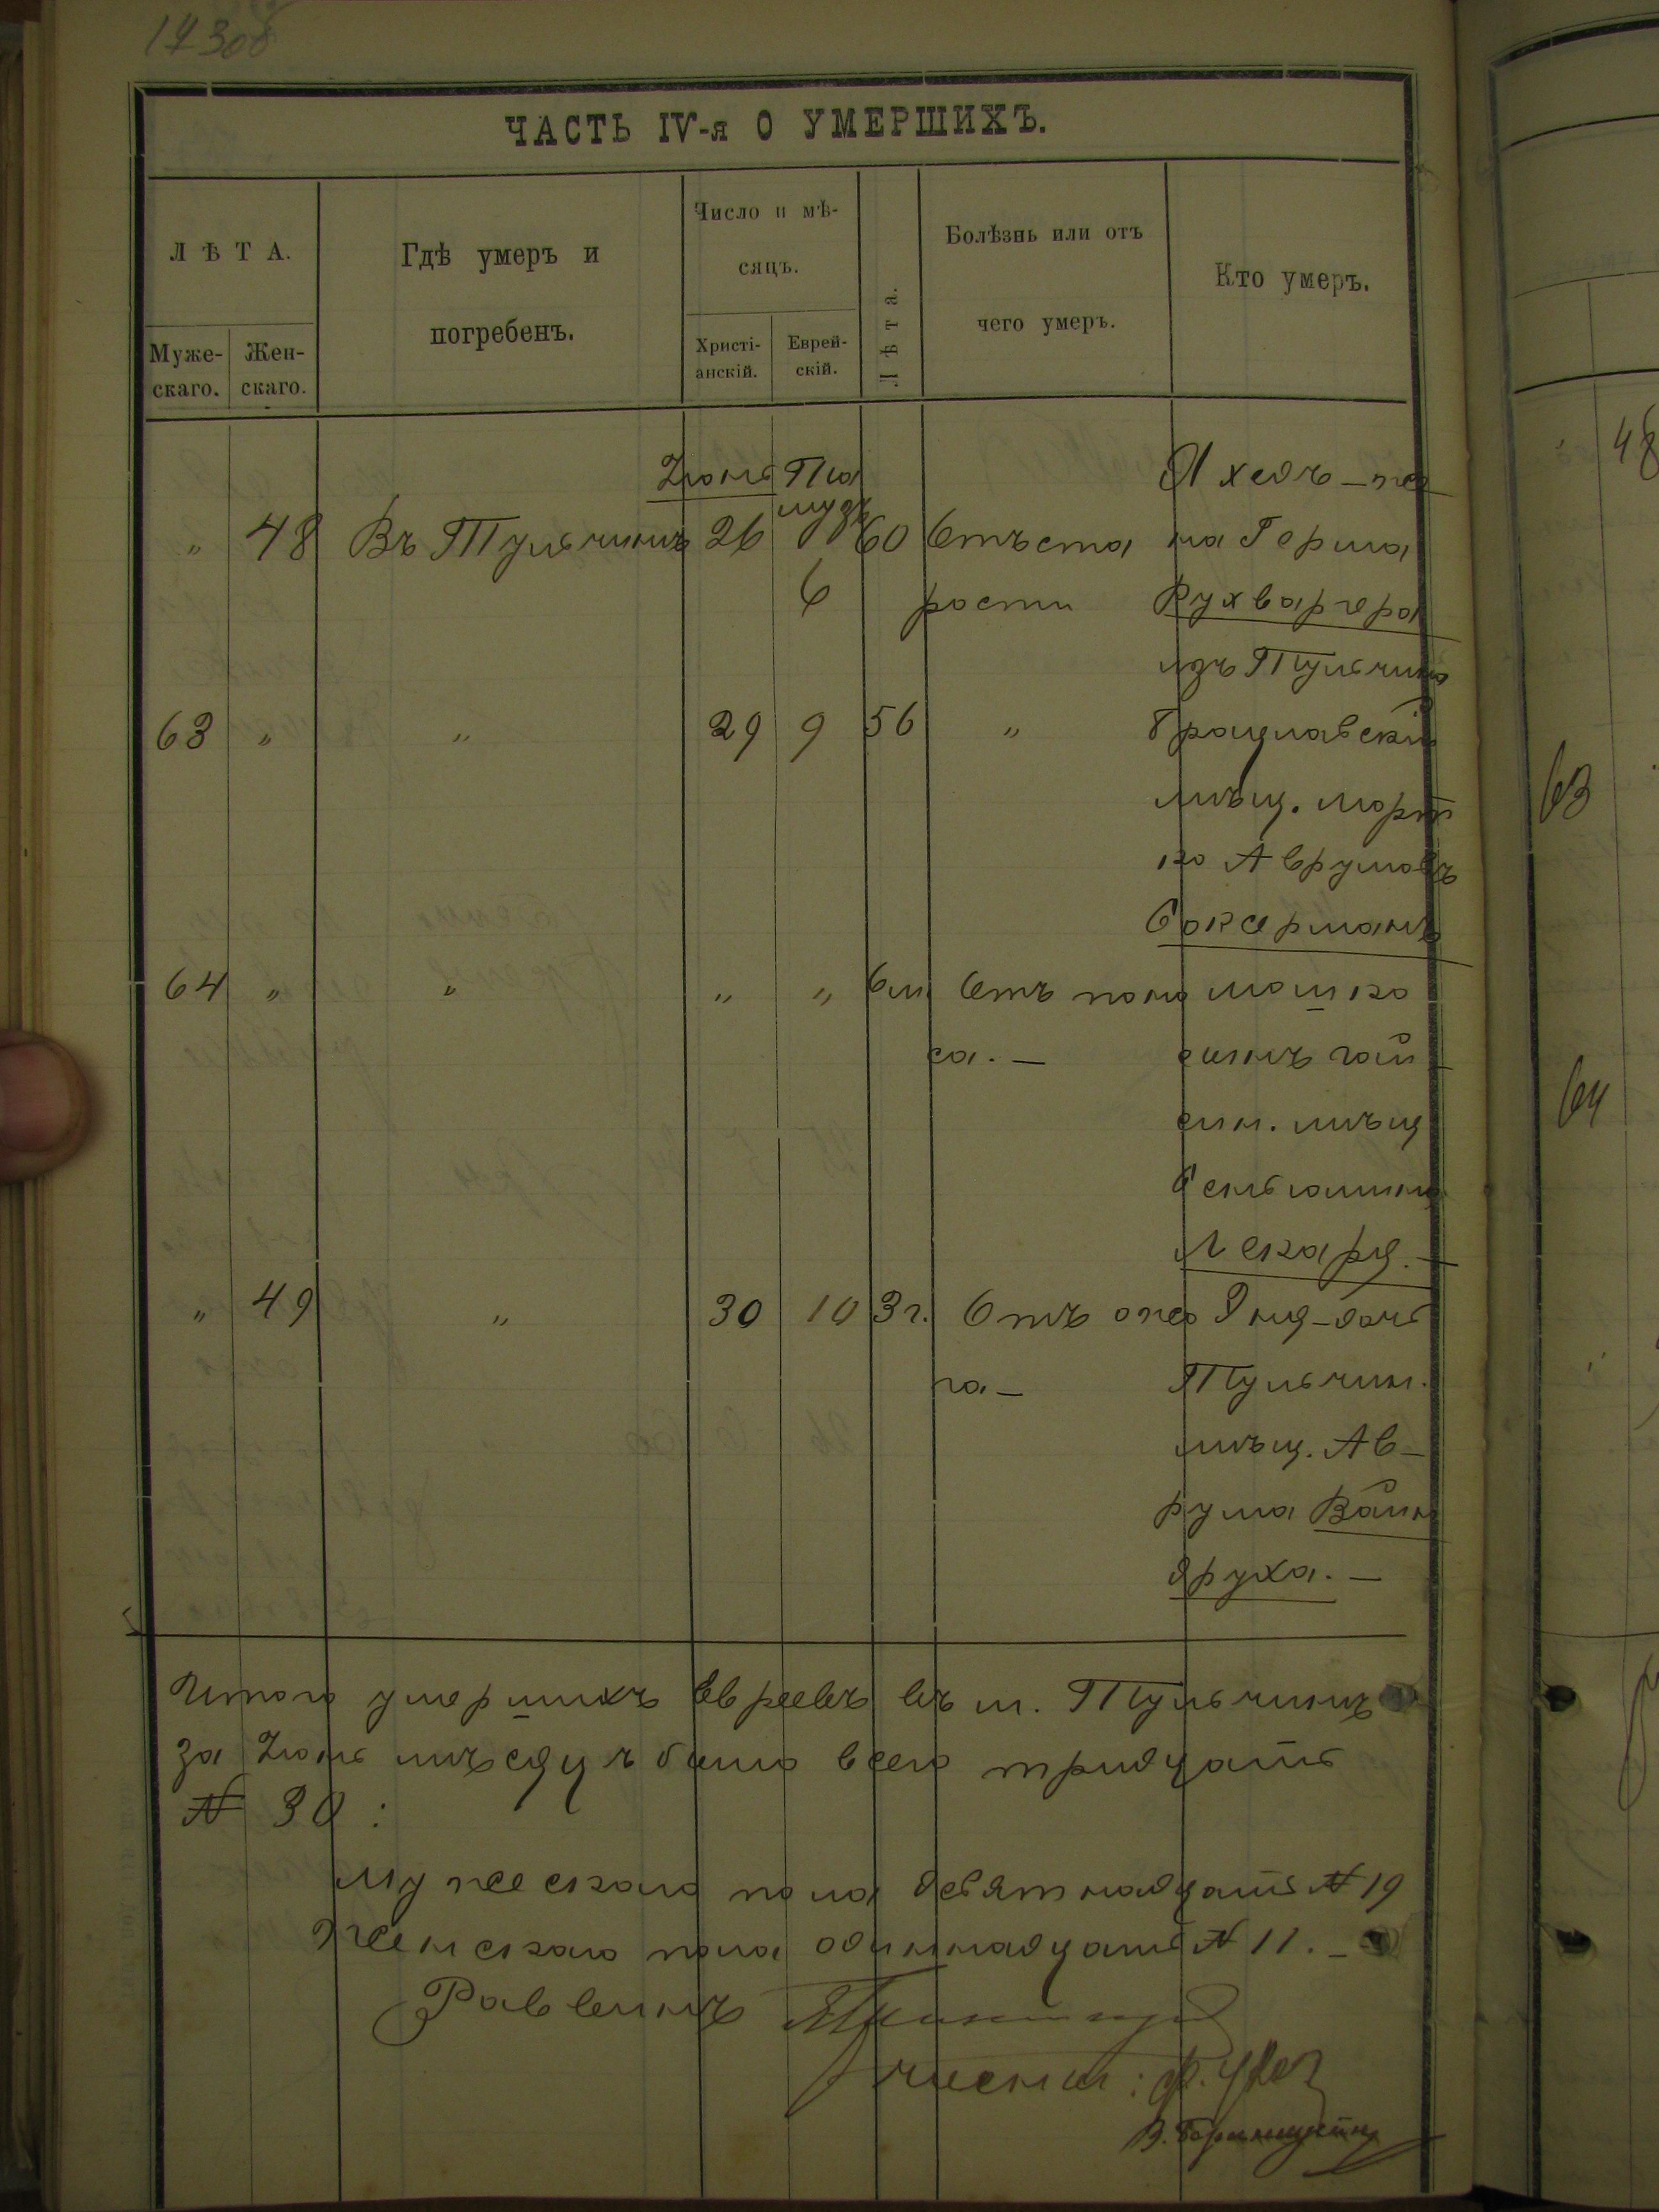 ЧАСТЬ IV-я О УМЕРШИХЪ.
ЛѢТА.
Муже-
скаго.
Жен-
скаго.
Гдѣ умеръ и
погребенъ.
Число и мѣ-
сяцъ.
Христі-
анскій.
Еврей-
скій.
Лѣта.
Болѣзнь или отъ
чего умеръ.
Кто умеръ.
Іюнь
" 48 Въ Тульчинѣ 26 60 Отъ ста на Герша
6 рости
изъ Тульчина
63 " " 29 9 56 " Брацлавскій
мѣщ.
ко Аврумовъ
Боксерманъ
64 " " " " 6м Отъ поно
са. — сынъ гай
син. мѣщ
Беньямина
Лекаря. —
" 49 " 30 10 3 г. Отъ ожо дочь
га — Тульчин.
мѣщ. Ав-
рума Вайн
друха. —
Итого умершихъ Евреевъ въ м. Тульчинѣ
за Іюнь мѣсяцъ было всего тридцать
№ 30 :
Мужескаго пола девятнадцать № 19
Женскаго пола одиннадцать № 11. —
Раввинъ
48
63
64